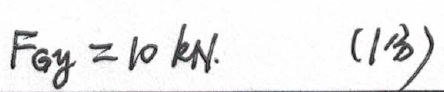 F_{Gy} = 10 kN. (1分)